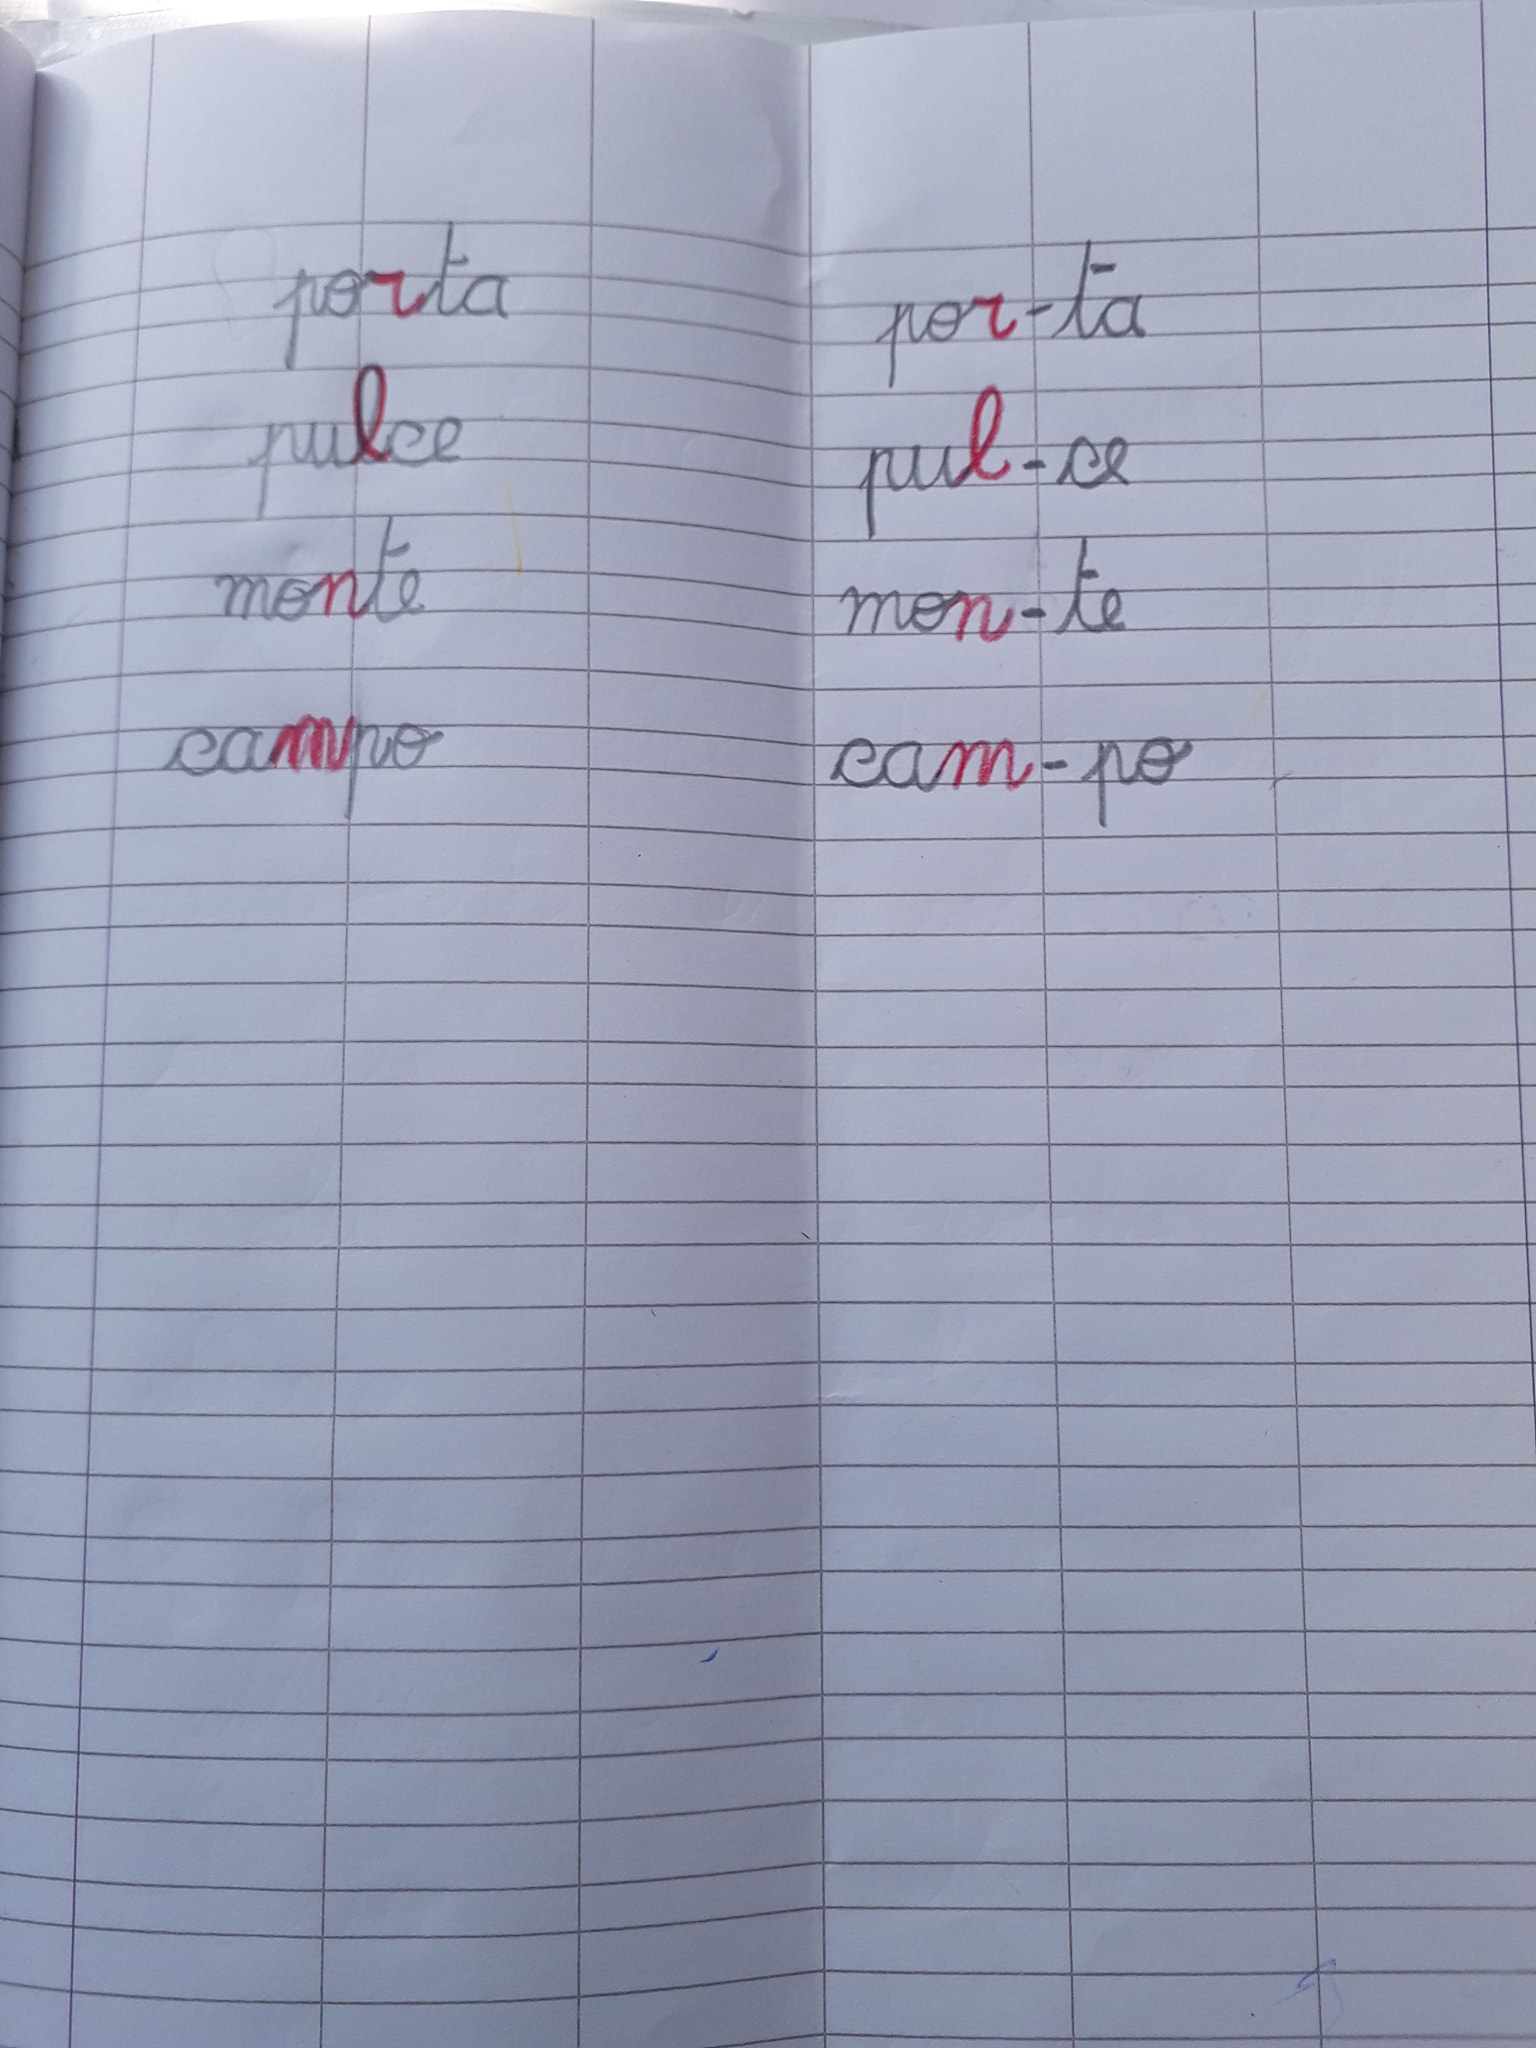 porta por-ta
pulce pul-ce
monte mon-te
campo cam-po